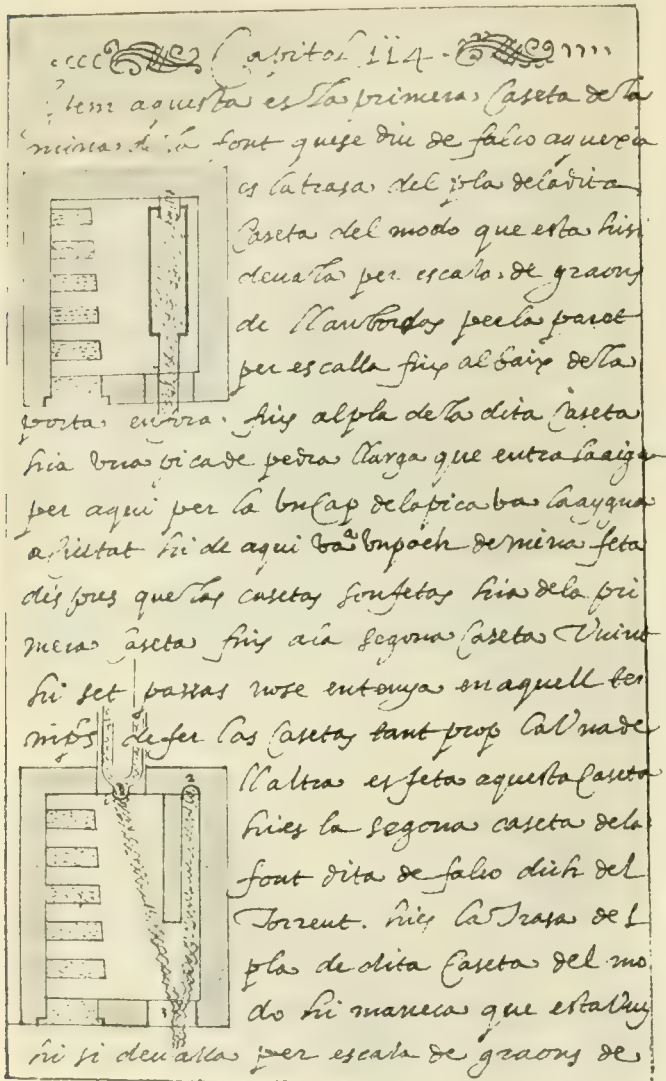 Capitol 114.
Item aquesta és la primera Caseta de la
mina de la font quise diu de falco aquexia
es la trasa del pla de la dita
Caseta del modo que esta hisi
devalla per escala de graons
de llambordas per la paret
per escalla fins al baix de la
porta his al pla de la dita Caseta
hia una pica de pedra llarga que entra laaiga
per aqui per la bu Cap de la pica va laaygua
a siutat hi de aqui va un poch de mina feta
despres que las casetas son fetas hia de la pri
mera Caseta fins a la segona Caseta Vuint
hi set passas nose entenya en aquell ter
mips de fer las Casetas tant prop la Vna de
llaltra es feta aquesta Caseta
hies la segona caseta dela
font dita de falco dich del
Torrent. hies la Trasa del
pla de dita Caseta del mo
do hi manera que esta Vuy
hi si devalla per escala de graons de
2